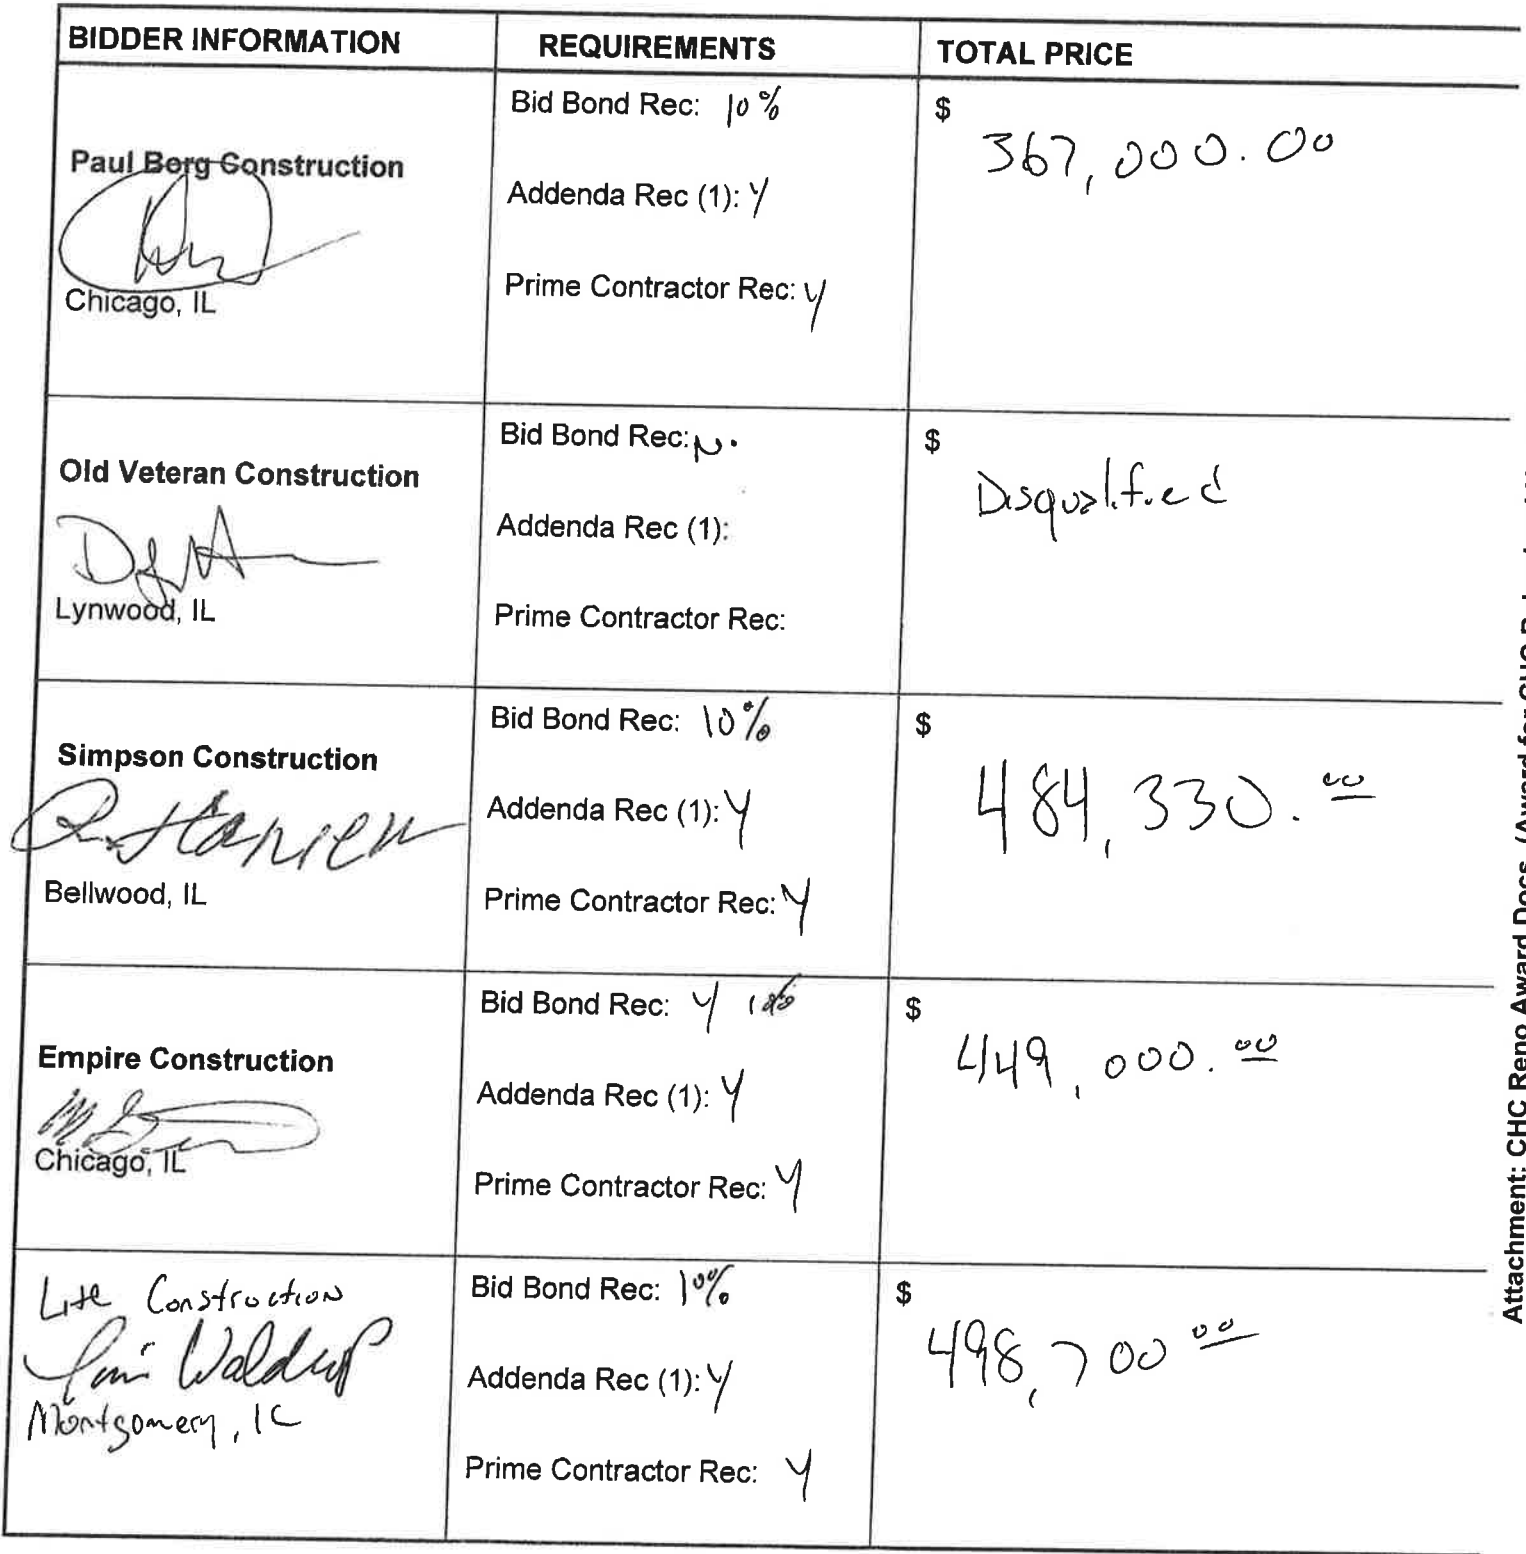 BIDDER INFORMATION REQUIREMENTS TOTAL PRICE
Paul Berg Construction
Chicago, IL
Bid Bond Rec: 10%
Addenda Rec (1): Y
Prime Contractor Rec: Y
$
367,000.00
Old Veteran Construction
Lynwood, IL
Bid Bond Rec: N.
Addenda Rec (1):
Prime Contractor Rec:
$
Disqualified
Simpson Construction
Bellwood, IL
Bid Bond Rec: 10%
Addenda Rec (1): Y
Prime Contractor Rec: Y
$
484,330.00
Empire Construction
Chicago, IL
Bid Bond Rec: Y 10%
Addenda Rec (1): Y
Prime Contractor Rec: Y
$
449,000.00
Lite Construction
Waldrup
Montgomery, IL
Bid Bond Rec: 10%
Addenda Rec (1): Y
Prime Contractor Rec: Y
$
498,700 00
Attachment: CHC Reno Award Docs (Award for CHC